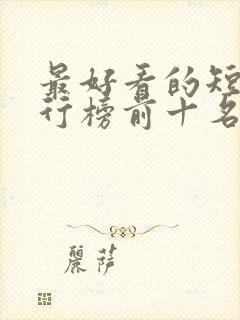 最好看的短
行榜前十名
丽萨